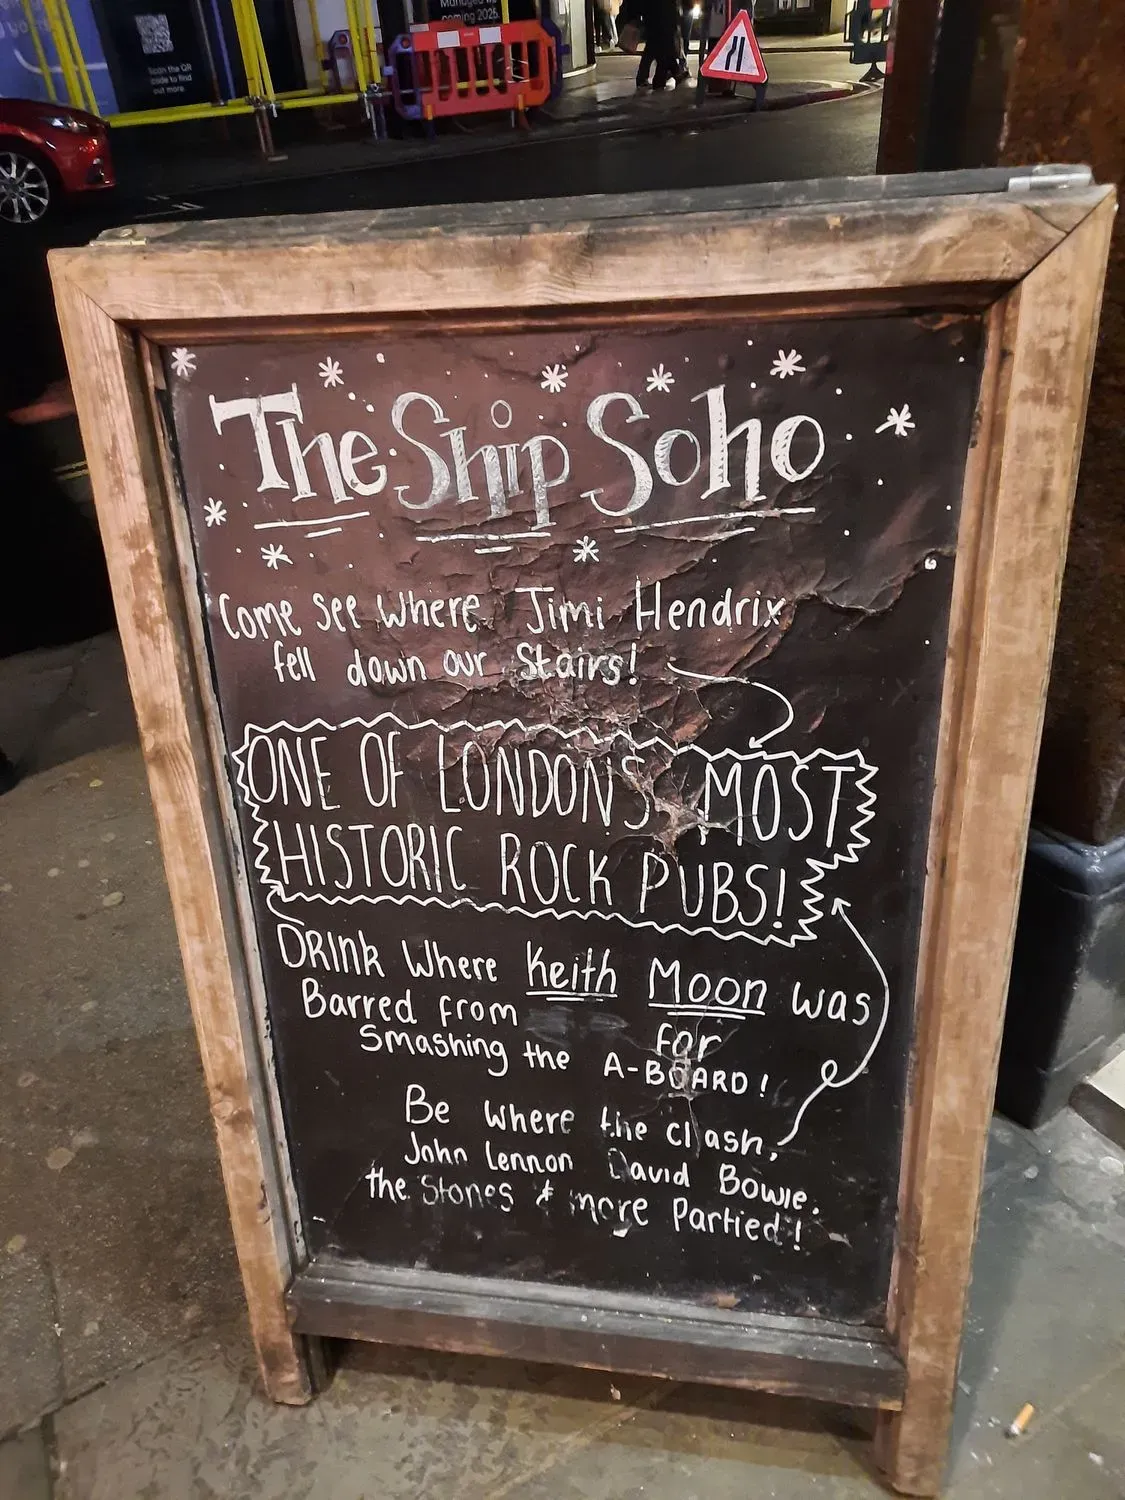 Managed by
coming 2025.
Scan the QR
code to find
out more.
The Ship Soho
Come see where Jimi Hendrix
fell down our Stairs!
ONE OF LONDON'S MOST
HISTORIC ROCK PUBS!
DRINK Where Keith Moon was
Barred from for
Smashing the A-BOARD!
Be where the Clash,
John Lennon David Bowie.
the Stones & more Partied!